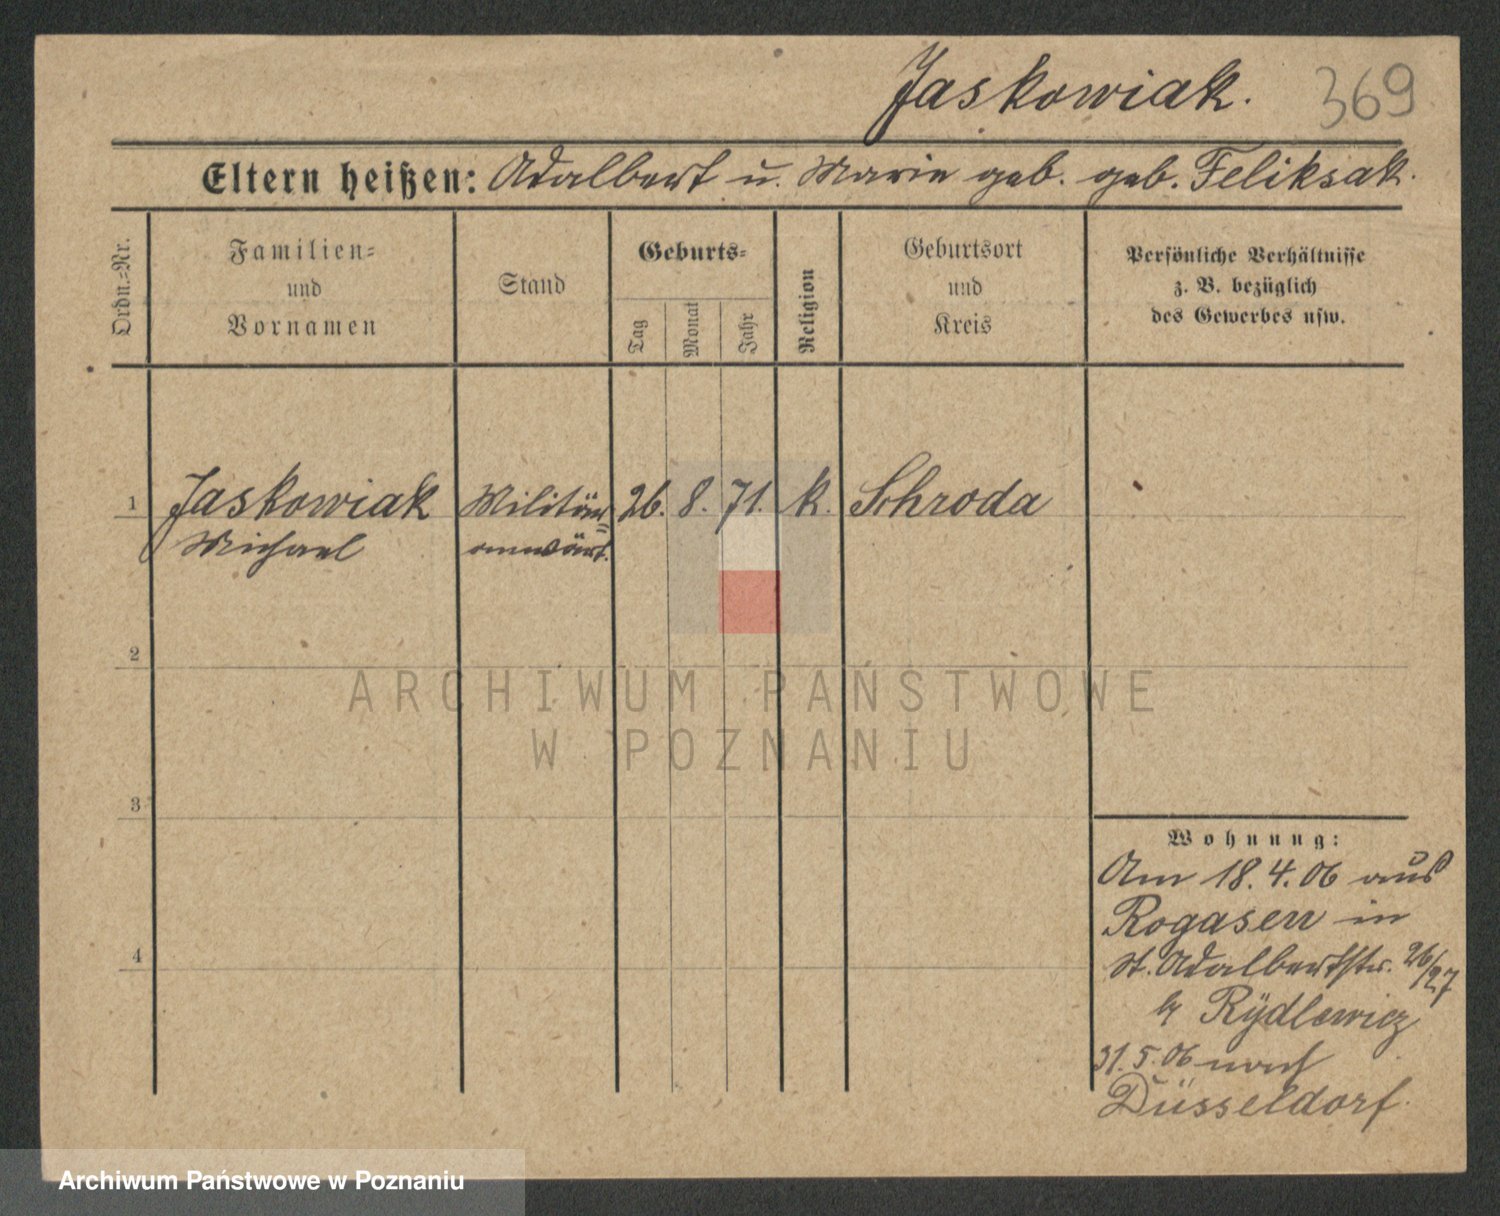 Jaskowiak. 369
Eltern heißen: Adalbert u. Marie geb. geb. Feliksak.
Ordn.-Nr.
Familien-
und
Vornamen
Stand
Geburts-
Tag
Monat
Jahr
Religion
Geburtsort
und
Kreis
Persönliche Verhältnisse
z. B. bezüglich
des Gewerbes usw.
1 Jaskowiak Militär= 26. 8. 71. k. Schroda
Michael anwärt.
2
ARCHIWUM PAŃSTWOWE
W POZNANIU
3
Wohnung:
Am 18.4.06 aus
Rogasen in
St. Adalbertstr. 26/27
b/ Rydlewicz
31.5.06 nach
Düsseldorf.
4
Archiwum Państwowe w Poznaniu